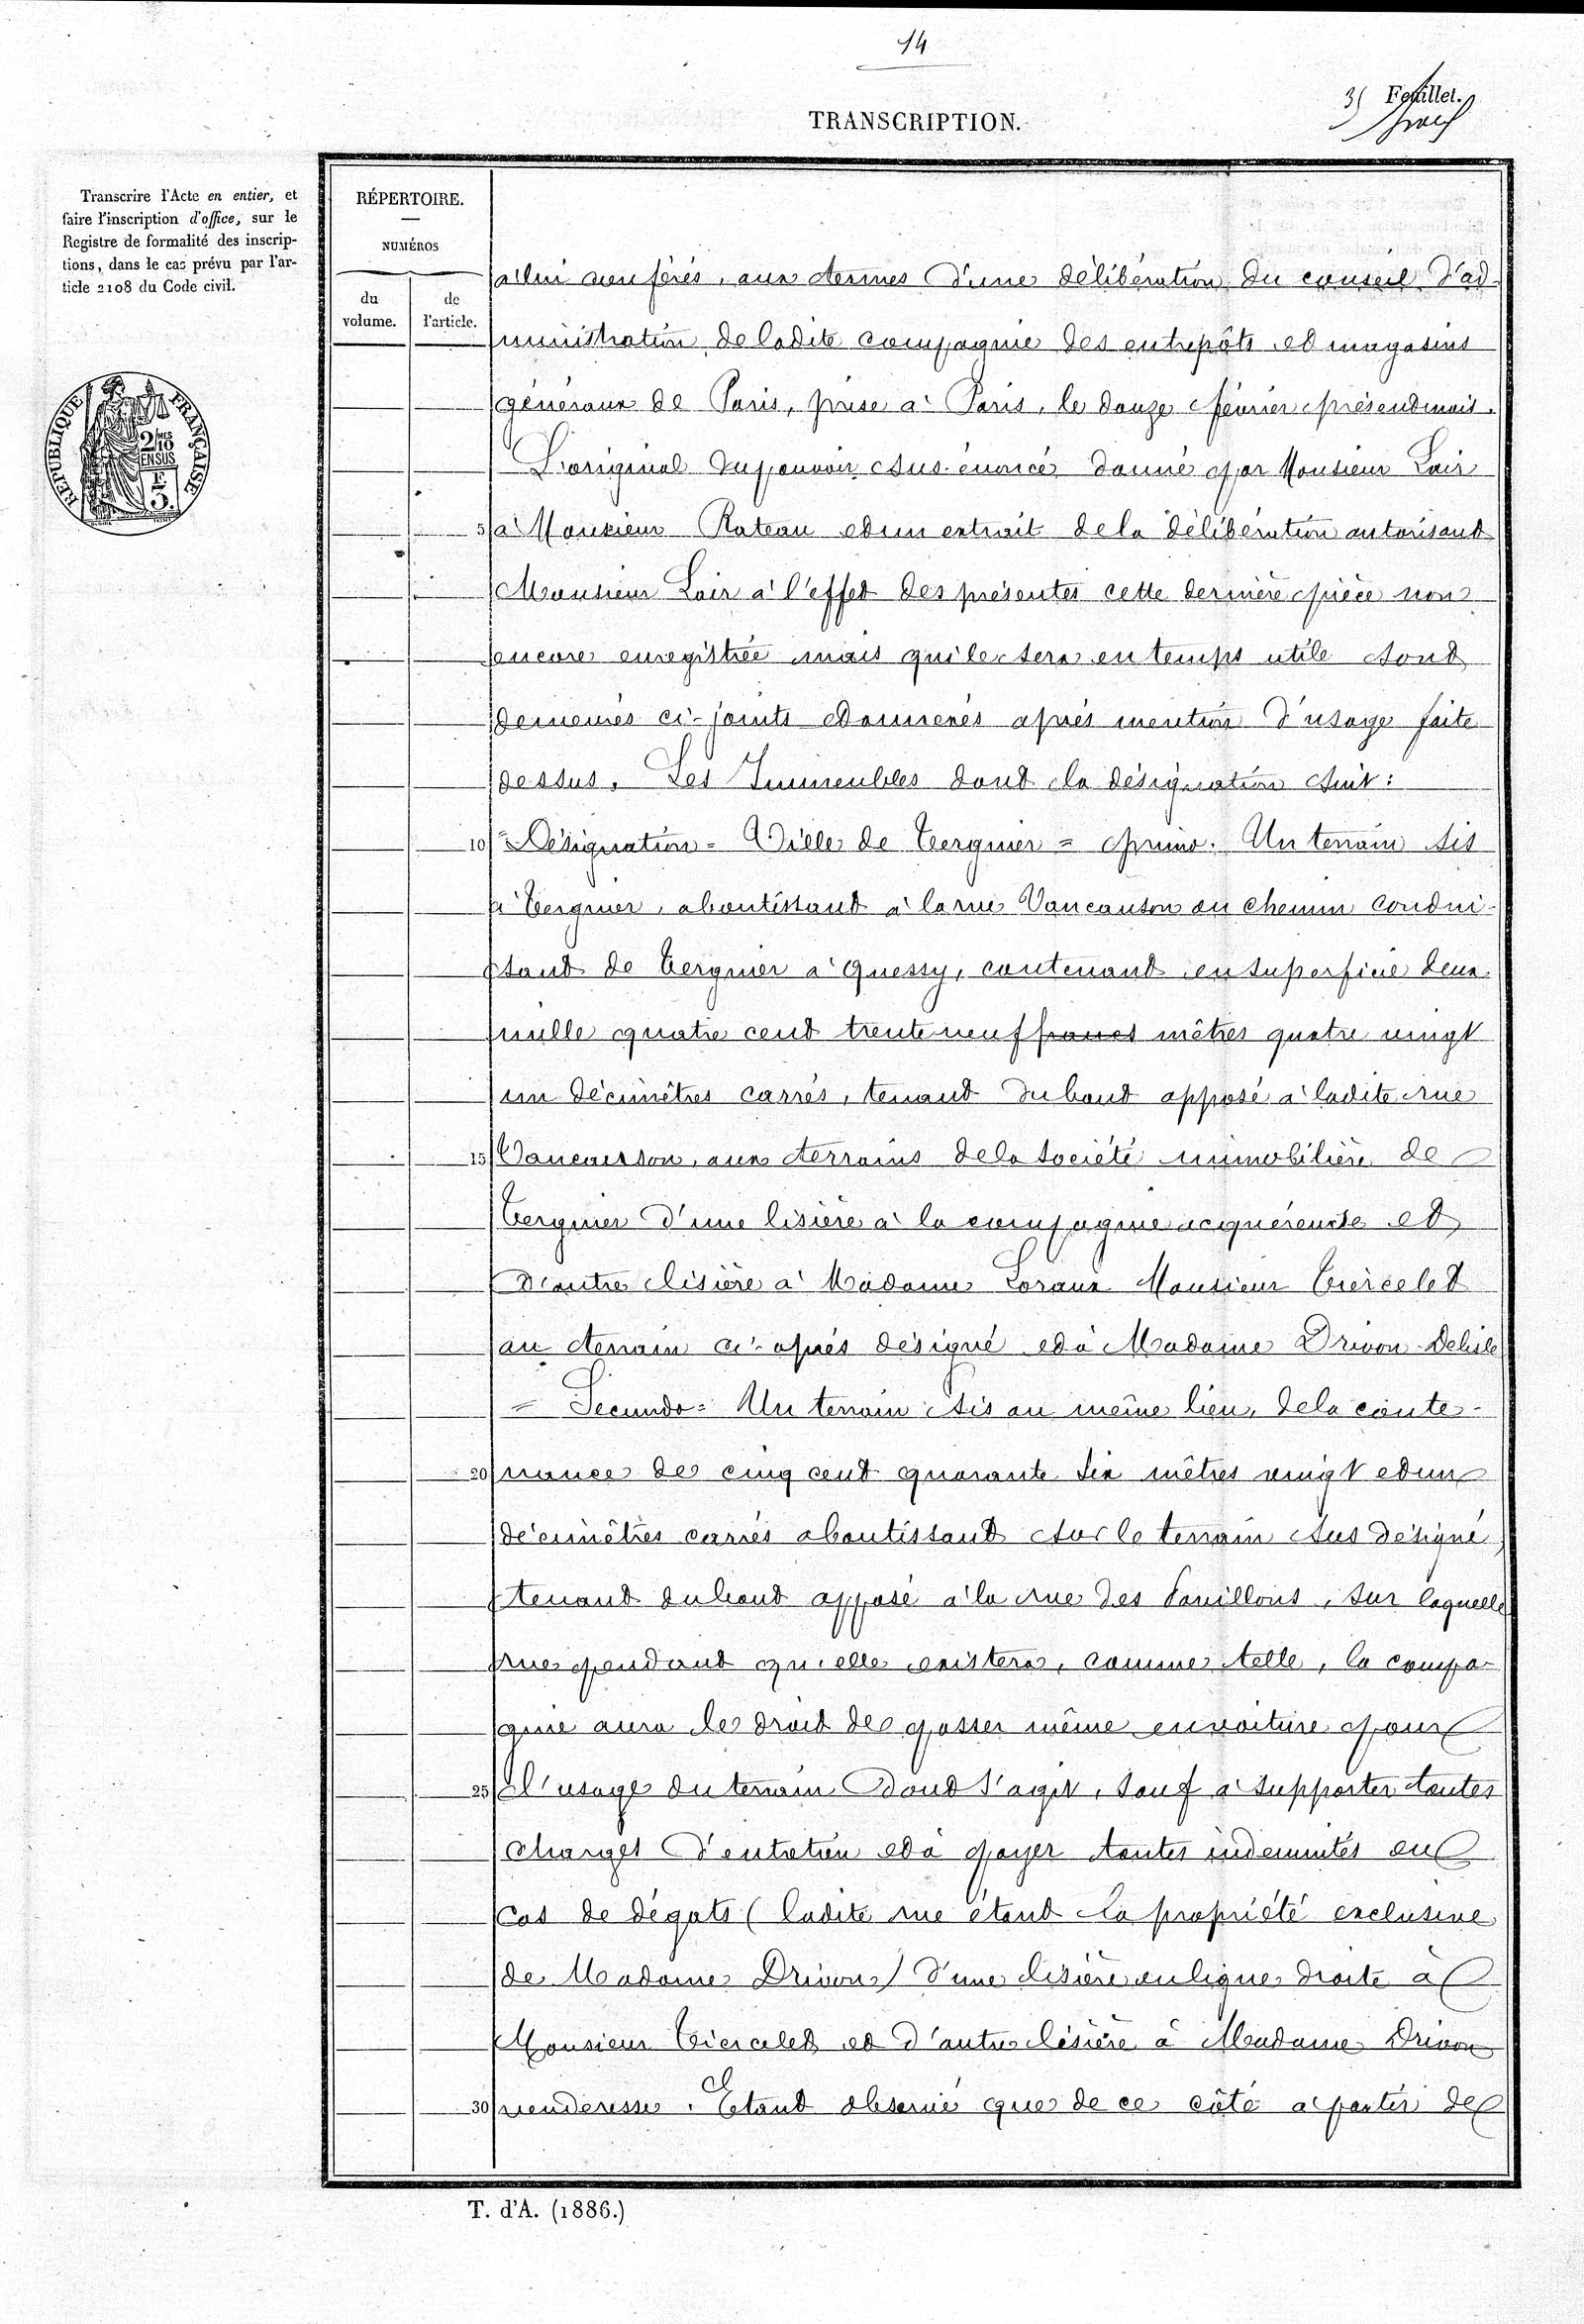 14
TRANSCRIPTION.
3e Feuillet.
Transcrire l'Acte en entier, et
faire l'inscription d'office, sur le
Registre de formalité des inscrip-
tions, dans le cas prévu par l'ar-
ticle 2108 du Code civil.
RÉPUBLIQUE FRANÇAISE
2/10MES
EN SUS
3F
RÉPERTOIRE.
NUMÉROS
du volume.
de l'article.
à lui conférés, aux termes d'une délibération du conseil d'ad-
ministration de ladite compagnie des entrepôts et magasins
généraux de Paris, prise à Paris, le douze février présent mois.
L'original du pouvoir sus-énoncé donné par Monsieur Loir
5 à Monsieur Rateau et un extrait de la délibération autorisant
Monsieur Loir à l'effet des présentes cette dernière pièce non
encore enregistrée mais qui le sera en temps utile sont
demeurés ci-joints et annexés après mention d'usage faite
dessus. Les Immeubles dont la désignation suit:
10 = Désignation = Ville de Tergnier = primo. Un terrain sis
à Tergnier, aboutissant à la rue Vaucanson ou chemin condui-
sant de Tergnier à Quessy, contenant en superficie deux
mille quatre cent trente neuf francs mètres quatre vingt
un décimètres carrés, tenant du bout opposé à ladite rue
15 Vaucanson, aux terrains de la société immobilière de
Tergnier d'une lisière à la compagnie acquéreuse et
d'autre lisière à Madame Loraux Monsieur Tiercelet
au terrain ci-après désigné et à Madame Drivon-Delisle
= Secundo = Un terrain sis au même lieu, de la conte-
20 nance de cinq cent quarante six mètres vingt et un
décimètres carrés aboutissant sur le terrain sus désigné,
tenant du bout opposé à la rue des Pavillons, sur laquelle
rue pendant qu'elle existera, comme telle, la compa-
gnie aura le droit de passer même en voiture pour
25 l'usage du terrain dont s'agit, sauf à supporter toutes
charges d'entretien et à payer toutes indemnités en
cas de dégats (ladite rue étant la propriété exclusive
de Madame Drivon) d'une lisière en ligne droite à
Monsieur Tiercelet et d'autre lisière à Madame Drivon
30 venderesse. Etant observé que de ce côté a partir de
T. d'A. (1886.)